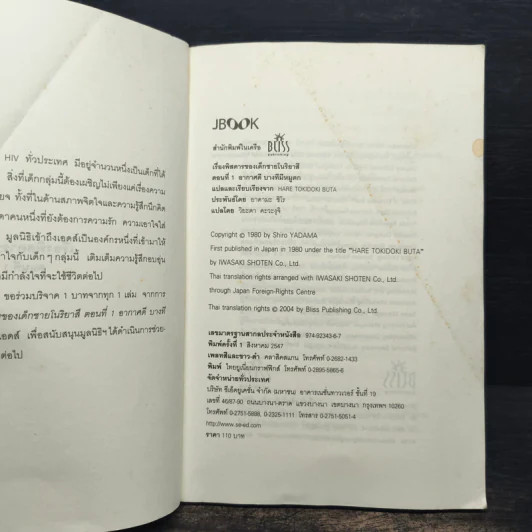 HIV ทั่วประเทศ มีอยู่จำนวนหนึ่งเป็นเด็กที่ได้
สิ่งที่เด็กกลุ่มนี้ต้องเผชิญไม่เพียงแค่เรื่องความ
ทั้งที่ในด้านสภาพจิตใจและความรู้สึกนึกคิด
คนหนึ่งที่ยังต้องการความรัก ความเอาใจใส่
มูลนิธิเข้าถึงเอดส์เป็นองค์กรหนึ่งที่เข้ามาให้
กับเด็ก ๆ กลุ่มนี้ เติมเต็มความรู้สึกอบอุ่น
มีกำลังใจที่จะใช้ชีวิตต่อไป
ขอร่วมบริจาค 1 บาทจากทุก 1 เล่ม จากการ
ของเด็กชายโนริยาสึ ตอนที่ 1 อากาศดี บางที
เอดส์ เพื่อสนับสนุนมูลนิธิฯ ได้ดำเนินการช่วย-
ต่อไป
JBOOK
สำนักพิมพ์ในเครือ BLISS publishing
เรื่องพิสดารของเด็กชายโนริยาสึ
ตอนที่ 1 อากาศดี บางทีมีหมูตก
แปลและเรียบเรียงจาก HARE TOKIDOKI BUTA
ประพันธ์โดย ยาดามะ ชิโร
แปลโดย
Copyright © 1980 by Shiro YADAMA
First published in Japan in 1980 under the title "HARE TOKIDOKI BUTA"
by IWASAKI SHOTEN Co., Ltd.
Thai translation rights arranged with IWASAKI SHOTEN Co., Ltd.
through Japan Foreign-Rights Centre
Thai translation rights © 2004 by Bliss Publishing Co., Ltd.
เลขมาตรฐานสากลประจำหนังสือ 974-92343-6-7
พิมพ์ครั้งที่ 1 สิงหาคม 2547
เพลทสีและขาว-ดำ คลาสิคสแกน โทรศัพท์ 0-2682-1433
พิมพ์ ไทยยูเนี่ยนกราฟฟิกส์ โทรศัพท์ 0-2895-5865-8
จัดจำหน่ายทั่วประเทศ
บริษัท ซีเอ็ดยูเคชั่น จำกัด (มหาชน) อาคารเนชั่นทาวเวอร์ ชั้นที่ 19
เลขที่ 46/87-90 ถนนบางนา-ตราด แขวงบางนา เขตบางนา กรุงเทพฯ 10260
โทรศัพท์ 0-2751-5888, 0-2325-1111 โทรสาร 0-2751-5051-4
http://www.se-ed.com
ราคา 110 บาท